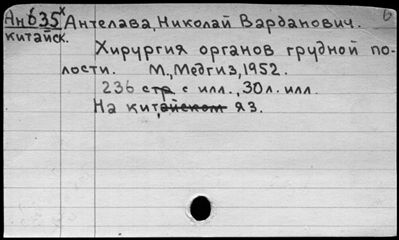 Анб35х Антелава, Николай Варданович. б
китайск.
Хирургия органов грудной по-
лости. М., Медгиз, 1952.
236 стр с илл., 30 л. илл.
На китайском яз.